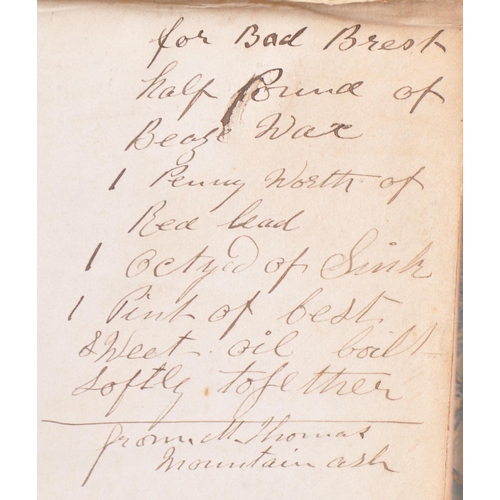 for Bad Brest
half Pound of
Beaze Wax
1 Penny Worth of
Red lead
1 octyed of Sink
1 Pint of best
sWeet oil boilt
softly together
from M Thomas
Mountain ash